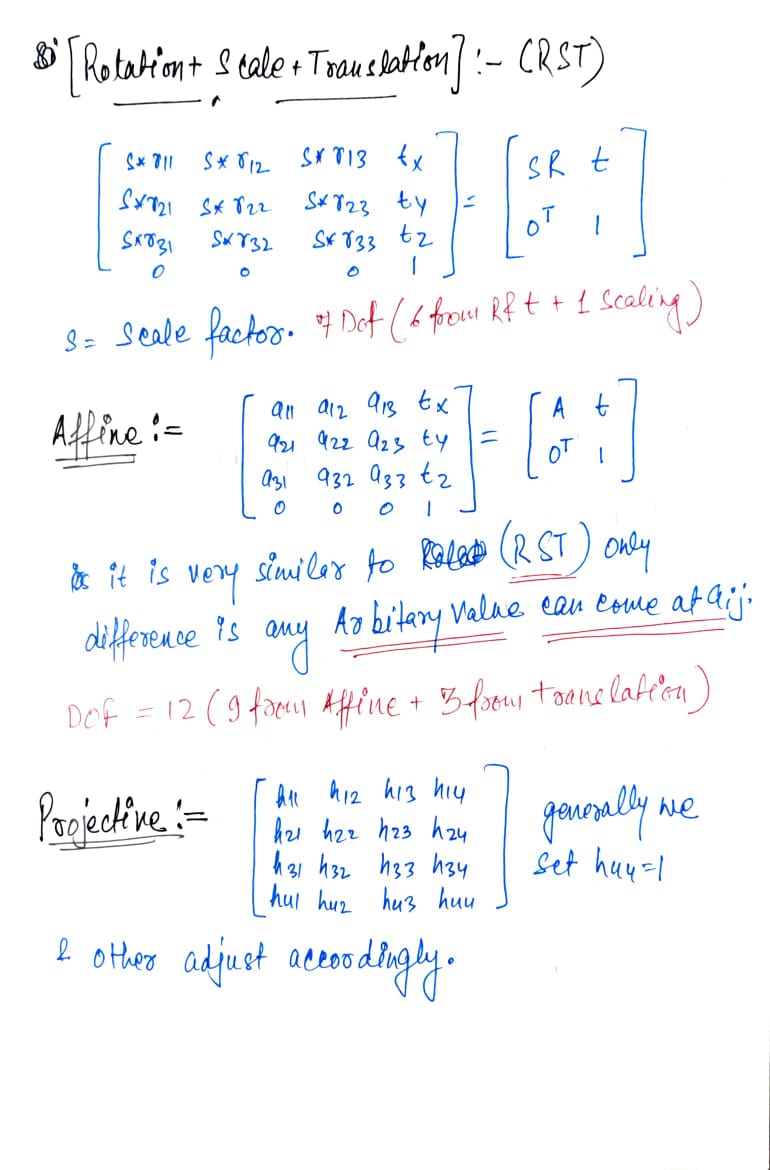 [Rotation + Scale + Translation] :- (RST)
[ S*r11 S*r12 S*r13 tx ] = [ SR t ]
[ S*r21 S*r22 S*r23 ty ] [ 0^T 1 ]
[ S*r31 S*r32 S*r33 tz ]
[ 0 0 0 1 ]
S = Scale factor. 7 Dof (6 from R & t + 1 Scaling)
Affine :=
[ a11 a12 a13 tx ] = [ A t ]
[ a21 a22 a23 ty ] [ 0^T 1 ]
[ a31 a32 a33 tz ]
[ 0 0 0 1 ]
it is very similar to (RST) only
difference is any Arbitary Value can come at aij.
DOF = 12 (9 from Affine + 3 from translation)
Projective :=
[ h11 h12 h13 h14 ] generally we
[ h21 h22 h23 h24 ] set h44=1
[ h31 h32 h33 h34 ]
[ h41 h42 h43 h44 ]
& other adjust accordingly.